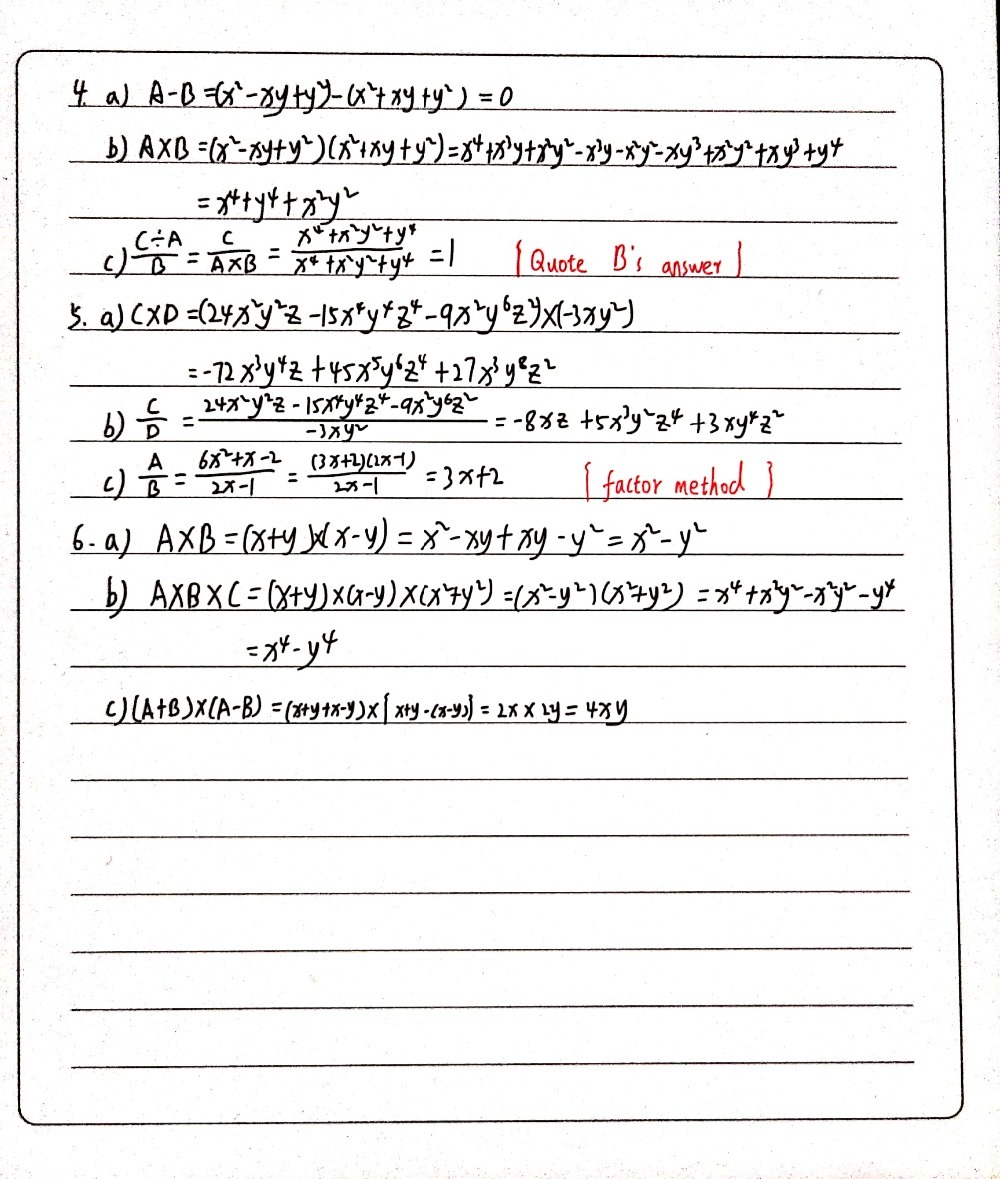 4. a) A-B =(x²-xy+y²)-(x²+xy+y²) = 0
b) A×B =(x²-xy+y²)(x²+xy+y²)=x⁴+x³y+x²y²-x³y-x²y²-xy³+x²y²+xy³+y⁴
= x⁴+y⁴+x²y²
c) \frac{C÷A}{B} = \frac{C}{A×B} = \frac{x⁴+x²y²+y⁴}{x⁴+x²y²+y⁴} = 1 [Quote B's answer]
5. a) C×D =(24x²y²z -15x⁴y⁴z⁴-9x²y⁶z²)×(-3xy²)
= -72x³y⁴z +45x⁵y⁶z⁴ +27x³y⁸z²
b) \frac{C}{D} = \frac{24x²y²z - 15x⁴y⁴z⁴-9x²y⁶z²}{-3xy²} = -8xz +5x³y²z⁴ +3xy⁴z²
c) \frac{A}{B} = \frac{6x²+x-2}{2x-1} = \frac{(3x+2)(2x-1)}{2x-1} = 3x+2 {factor method}
6. a) A×B =(x+y)×(x-y) = x²-xy+xy-y² = x²-y²
b) A×B×C =(x+y)×(x-y)×(x²+y²) =(x²-y²)(x²+y²) = x⁴+x²y²-x²y²-y⁴
= x⁴-y⁴
c) (A+B)×(A-B) =(x+y+x-y)×[x+y-(x-y)] = 2x × 2y = 4xy